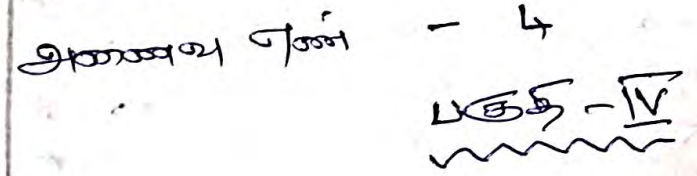 அணைவு எண் - 4
பகுதி - IV